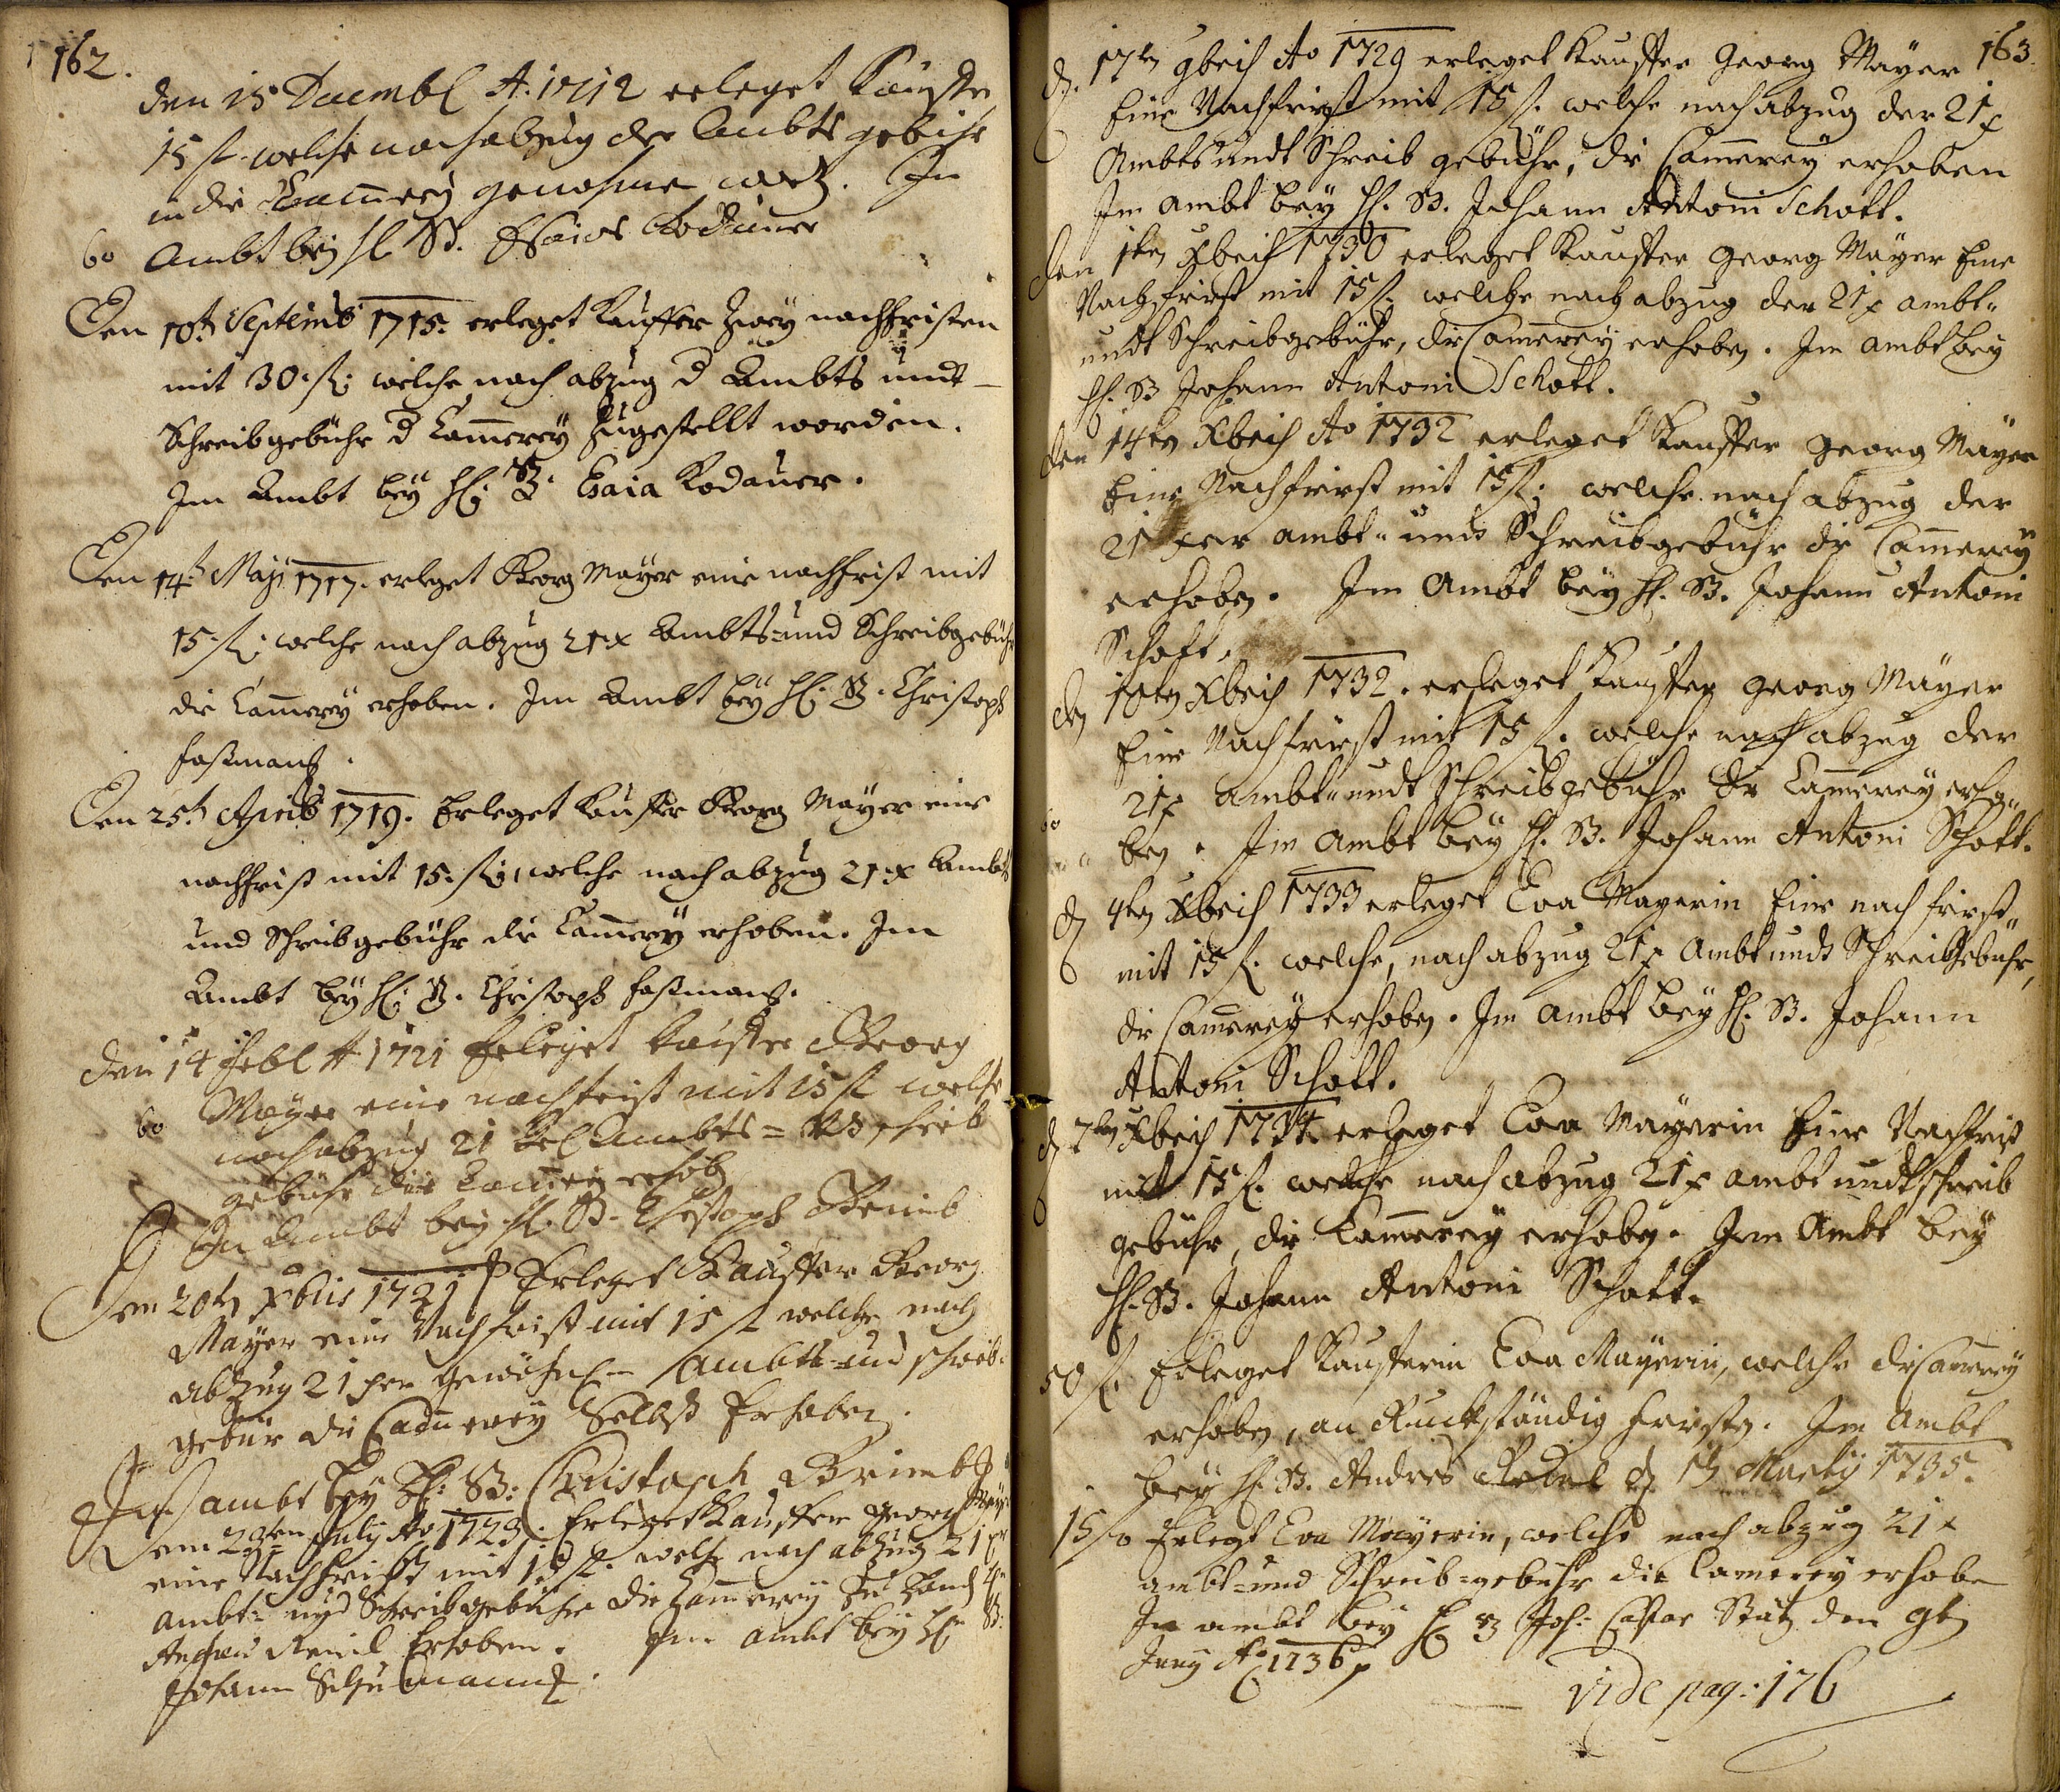 162.
den 15 Decembl A. 1712 erleget Kauffer
15 fl. welche nach abzug der Ambts gebühr
in die Cam̄erey genohmē word. Im
60 Ambt bey H B. Esaias Rodauer
Den 10th Septemb 1715. erleget Kauffer Zwey nachfristen
mit 30. fl; welche nach abzug d Ambts undt
Schreibgebühr d Cam̄erey zugestellt worden.
Im Ambt bey H; B. Esaia Rodauer.
Den 14t Maji 1717. erleget Georg Mayer eine nachfrist mit
15. fl; welche nach abzug 21 x Ambts= und Schreibgebühr
die Cam̄erey erhoben. Im Ambt bey H; B. Christoph
Faßmann.
Den 25th Aprils 1719. Erleget Kauffer Georg Mayer eine
nachfrist mit 15. fl; welche nach abzug 21 x Ambts
und Schreibgebühr die Cam̄erey erhoben. Im
Ambt bey H; B. Christoph Faßmann.
den 14 Febl A 1721 Erleget Kauffer Georg
60 Mayer eine nachfrist mit 15 fl welche
nach abzug 21 Ambts= schreib
gebühr die Cam̄erey erhob
Im Ambt bey H. B. Christoph Brimb
Den 20ten Xbris 1721 Erleget Kauffer Georg
Mayer eine Nachfrist mit 15 fl welche nach
abzug 21 xer Ambts= und schreib=
gebür die Cam̄erey Selbst Erhoben.
Im ambt bey H: B: Christoph Brimb
Dem 29ten July Ao 1723. Erleget Kauffer Georg Mayer
eine Nachfrist mit 15 fl. welche nach abzug 21 xr
Ambt= und Schreibgebühr die Cam̄erey Zu Hand
Erhoben. Im ambt bey H B:
Johann Schumann.
163.
d. 17ten 9bris Ao 1729 erleget Kauffer Georg Mayer
Eine Nachfrist mit 15 fl. welche nach abzug der 21 x
Ambts undt Schreib gebühr, die Cam̄erey erhoben
Im Ambt bey H. B. Johann Antoni Schott.
den 1ten Xbris 1730 erleget Kauffer Georg Mayer Eine
Nachfrist mit 15 fl. welche nach abzug der 21 x ambt=
undt Schreibgebühr, die Cam̄erey erhoben. Im Ambt bey
H. B Johann Antoni Schott.
den 14ten Xbris Ao 1732 erleget Kauffer Georg Mayer
Eine Nachfrist mit 15 fl; welche nach abzug der
21 xer ambt= undt Schreibgebühr die Cam̄erey
erhoben. Im Ambt bey H. B. Johann Antoni
Schott.
den 18ten Xbris 1732. erleget Kauffer Georg Mayer
Eine Nachfrist mit 15 fl. welche nach abzug der
21 x ambt= undt Schreibgebühr die Cam̄erey erho=
ben. Im Ambt bey H. B. Johann Antoni Schott.
d 4ten Xbris 1733 erleget Eva Mayerin Eine nach frist
mit 15 fl. welche, nach abzug 21 x Ambt undt Schreibgebühr,
die Cam̄erey erhoben. Im Ambt bey H. B. Johann
Antoni Schott.
d 7ten Xbris 1734 erleget Eva Mayerin Eine Nachfrist
mit 15 fl. welche nach abzug 21 x ambt undt schreib
gebühr, die Cam̄erey erhoben. Im Ambt bey
H. B. Johann Antoni Schott.
50 fl. Erleget Kaufferin Eva Mayerin, welche die Cam̄erey
erhoben, an Ruckständig fristen. Im Ambt
bey H. B. Andres Rebel d 15 Marty 1735.
15 fl Erlegt Eva Mayerin, welche nach abzug 21 x
ambt= und Schreib=gebühr die Cam̄erey erhoben
Im ambt bey H B Joh: Caspar Stütz den 9ten
Juny Ao 1736
vide pag: 176